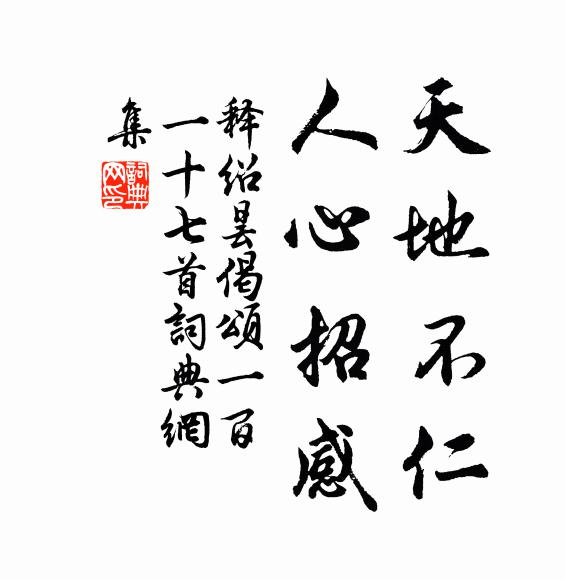 天地不仁
人心招感
释绍昙偈頌一百
一十七首詞典網
集
詞典
网印